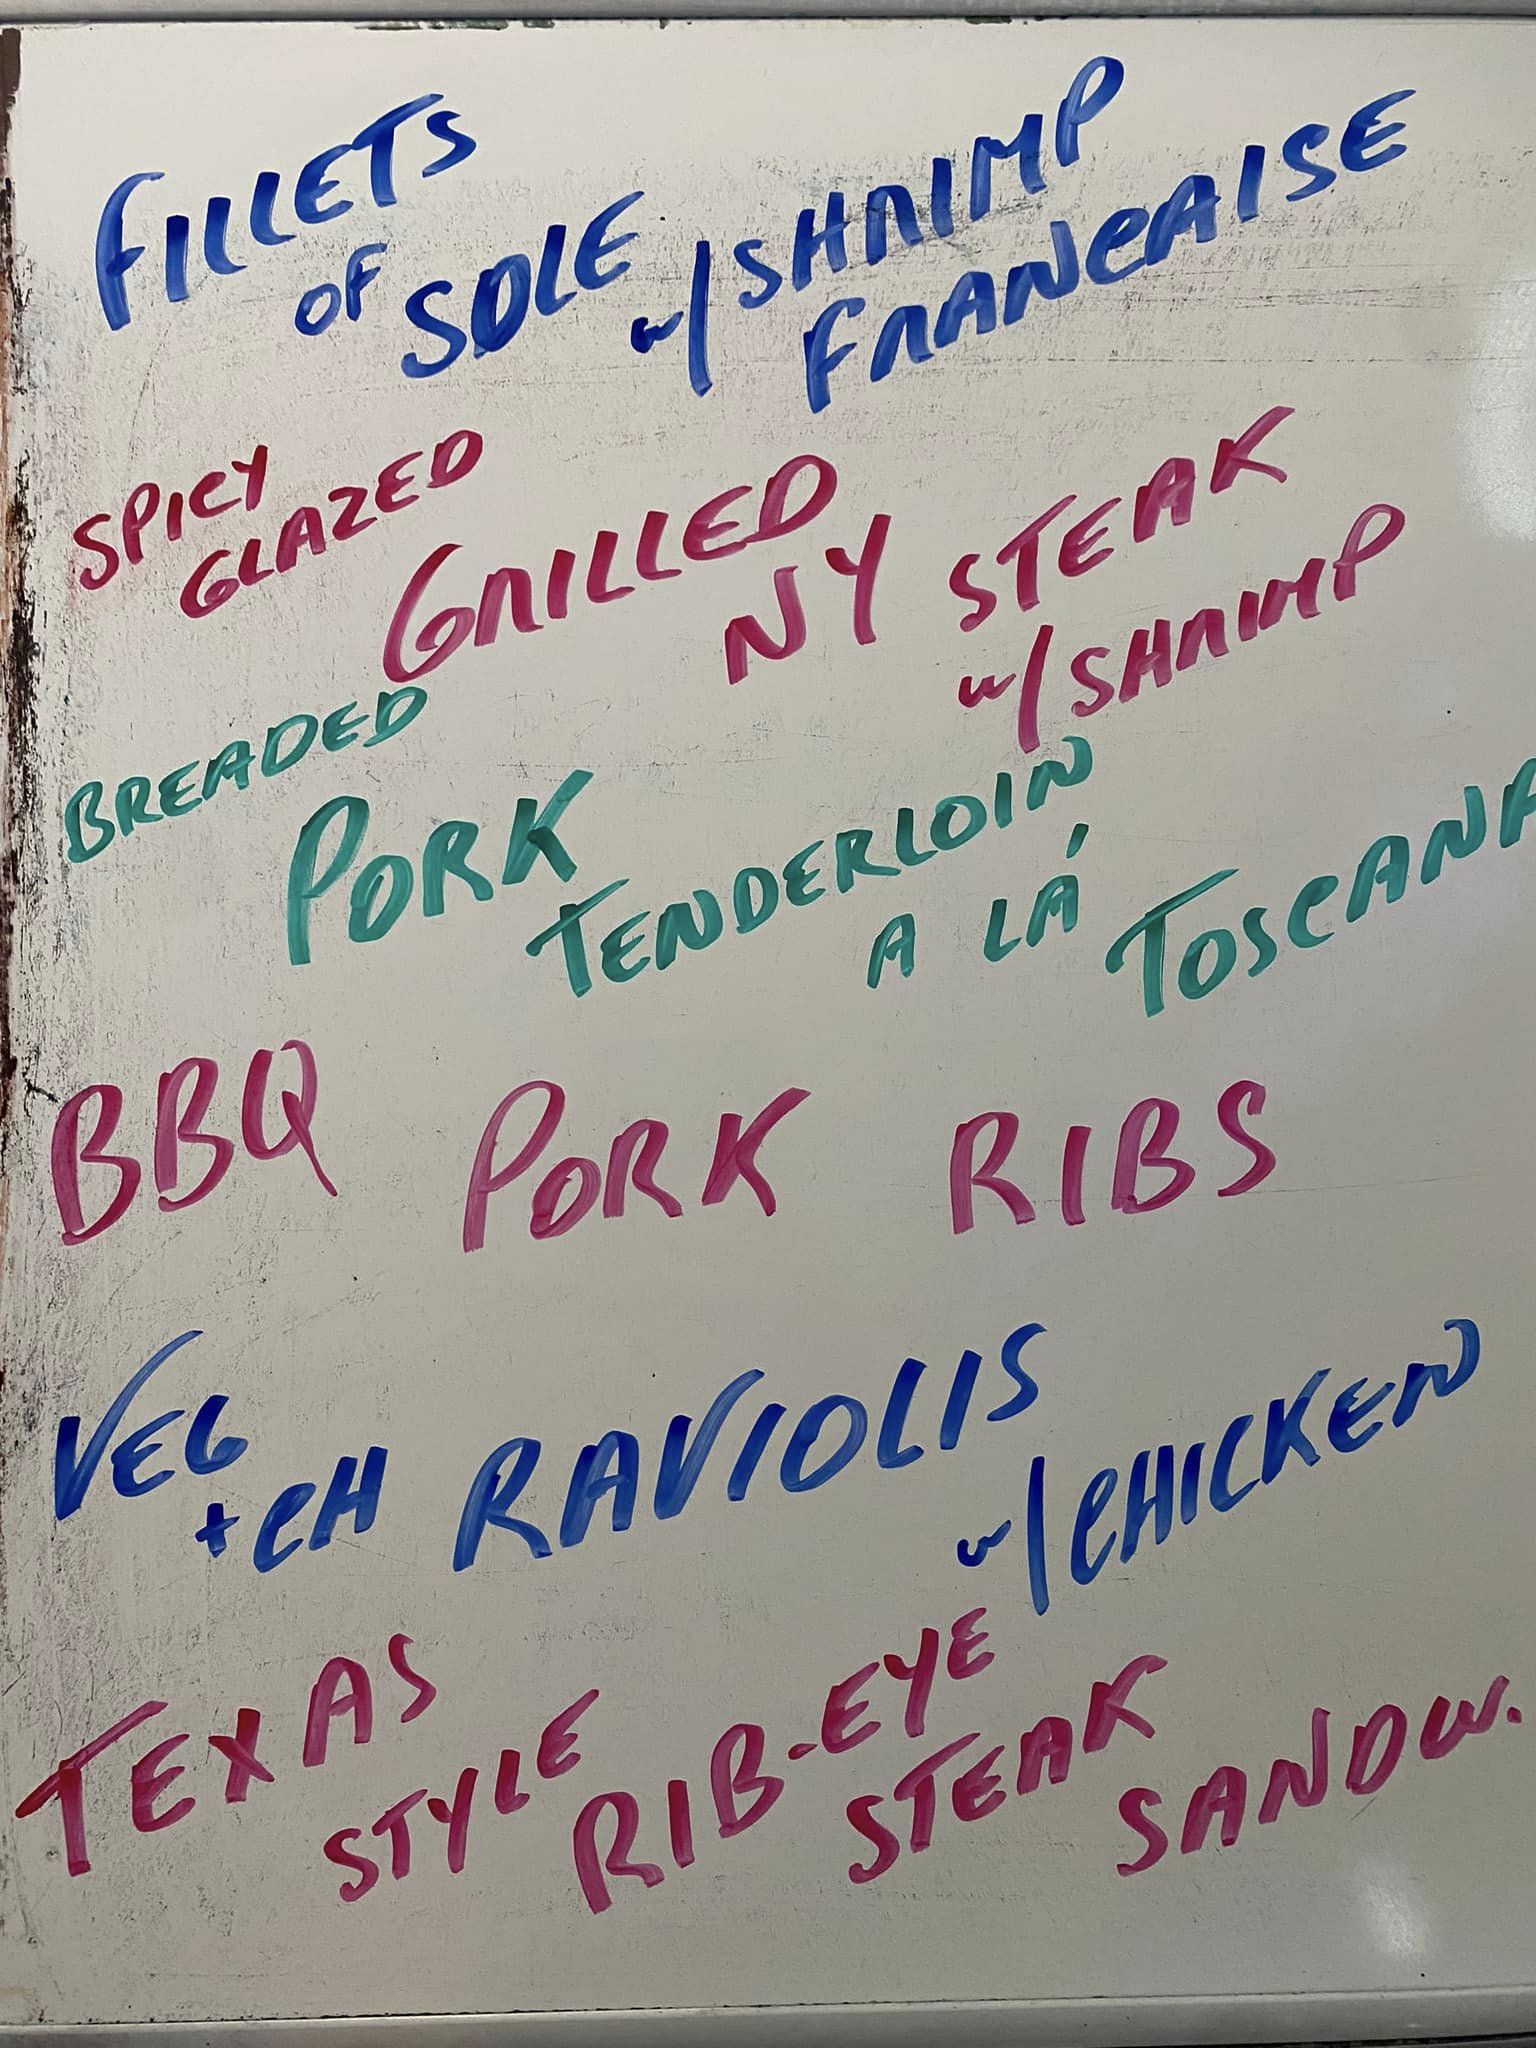 FILLETS OF SOLE w/ SHRIMP FRANCAISE
SPICY GLAZED GRILLED NY STEAK w/ SHRIMP
BREADED PORK TENDERLOIN A LÁ TOSCANA
BBQ PORK RIBS
VEG + CH RAVIOLIS w/ CHICKEN
TEXAS STYLE RIB-EYE STEAK SANDW.